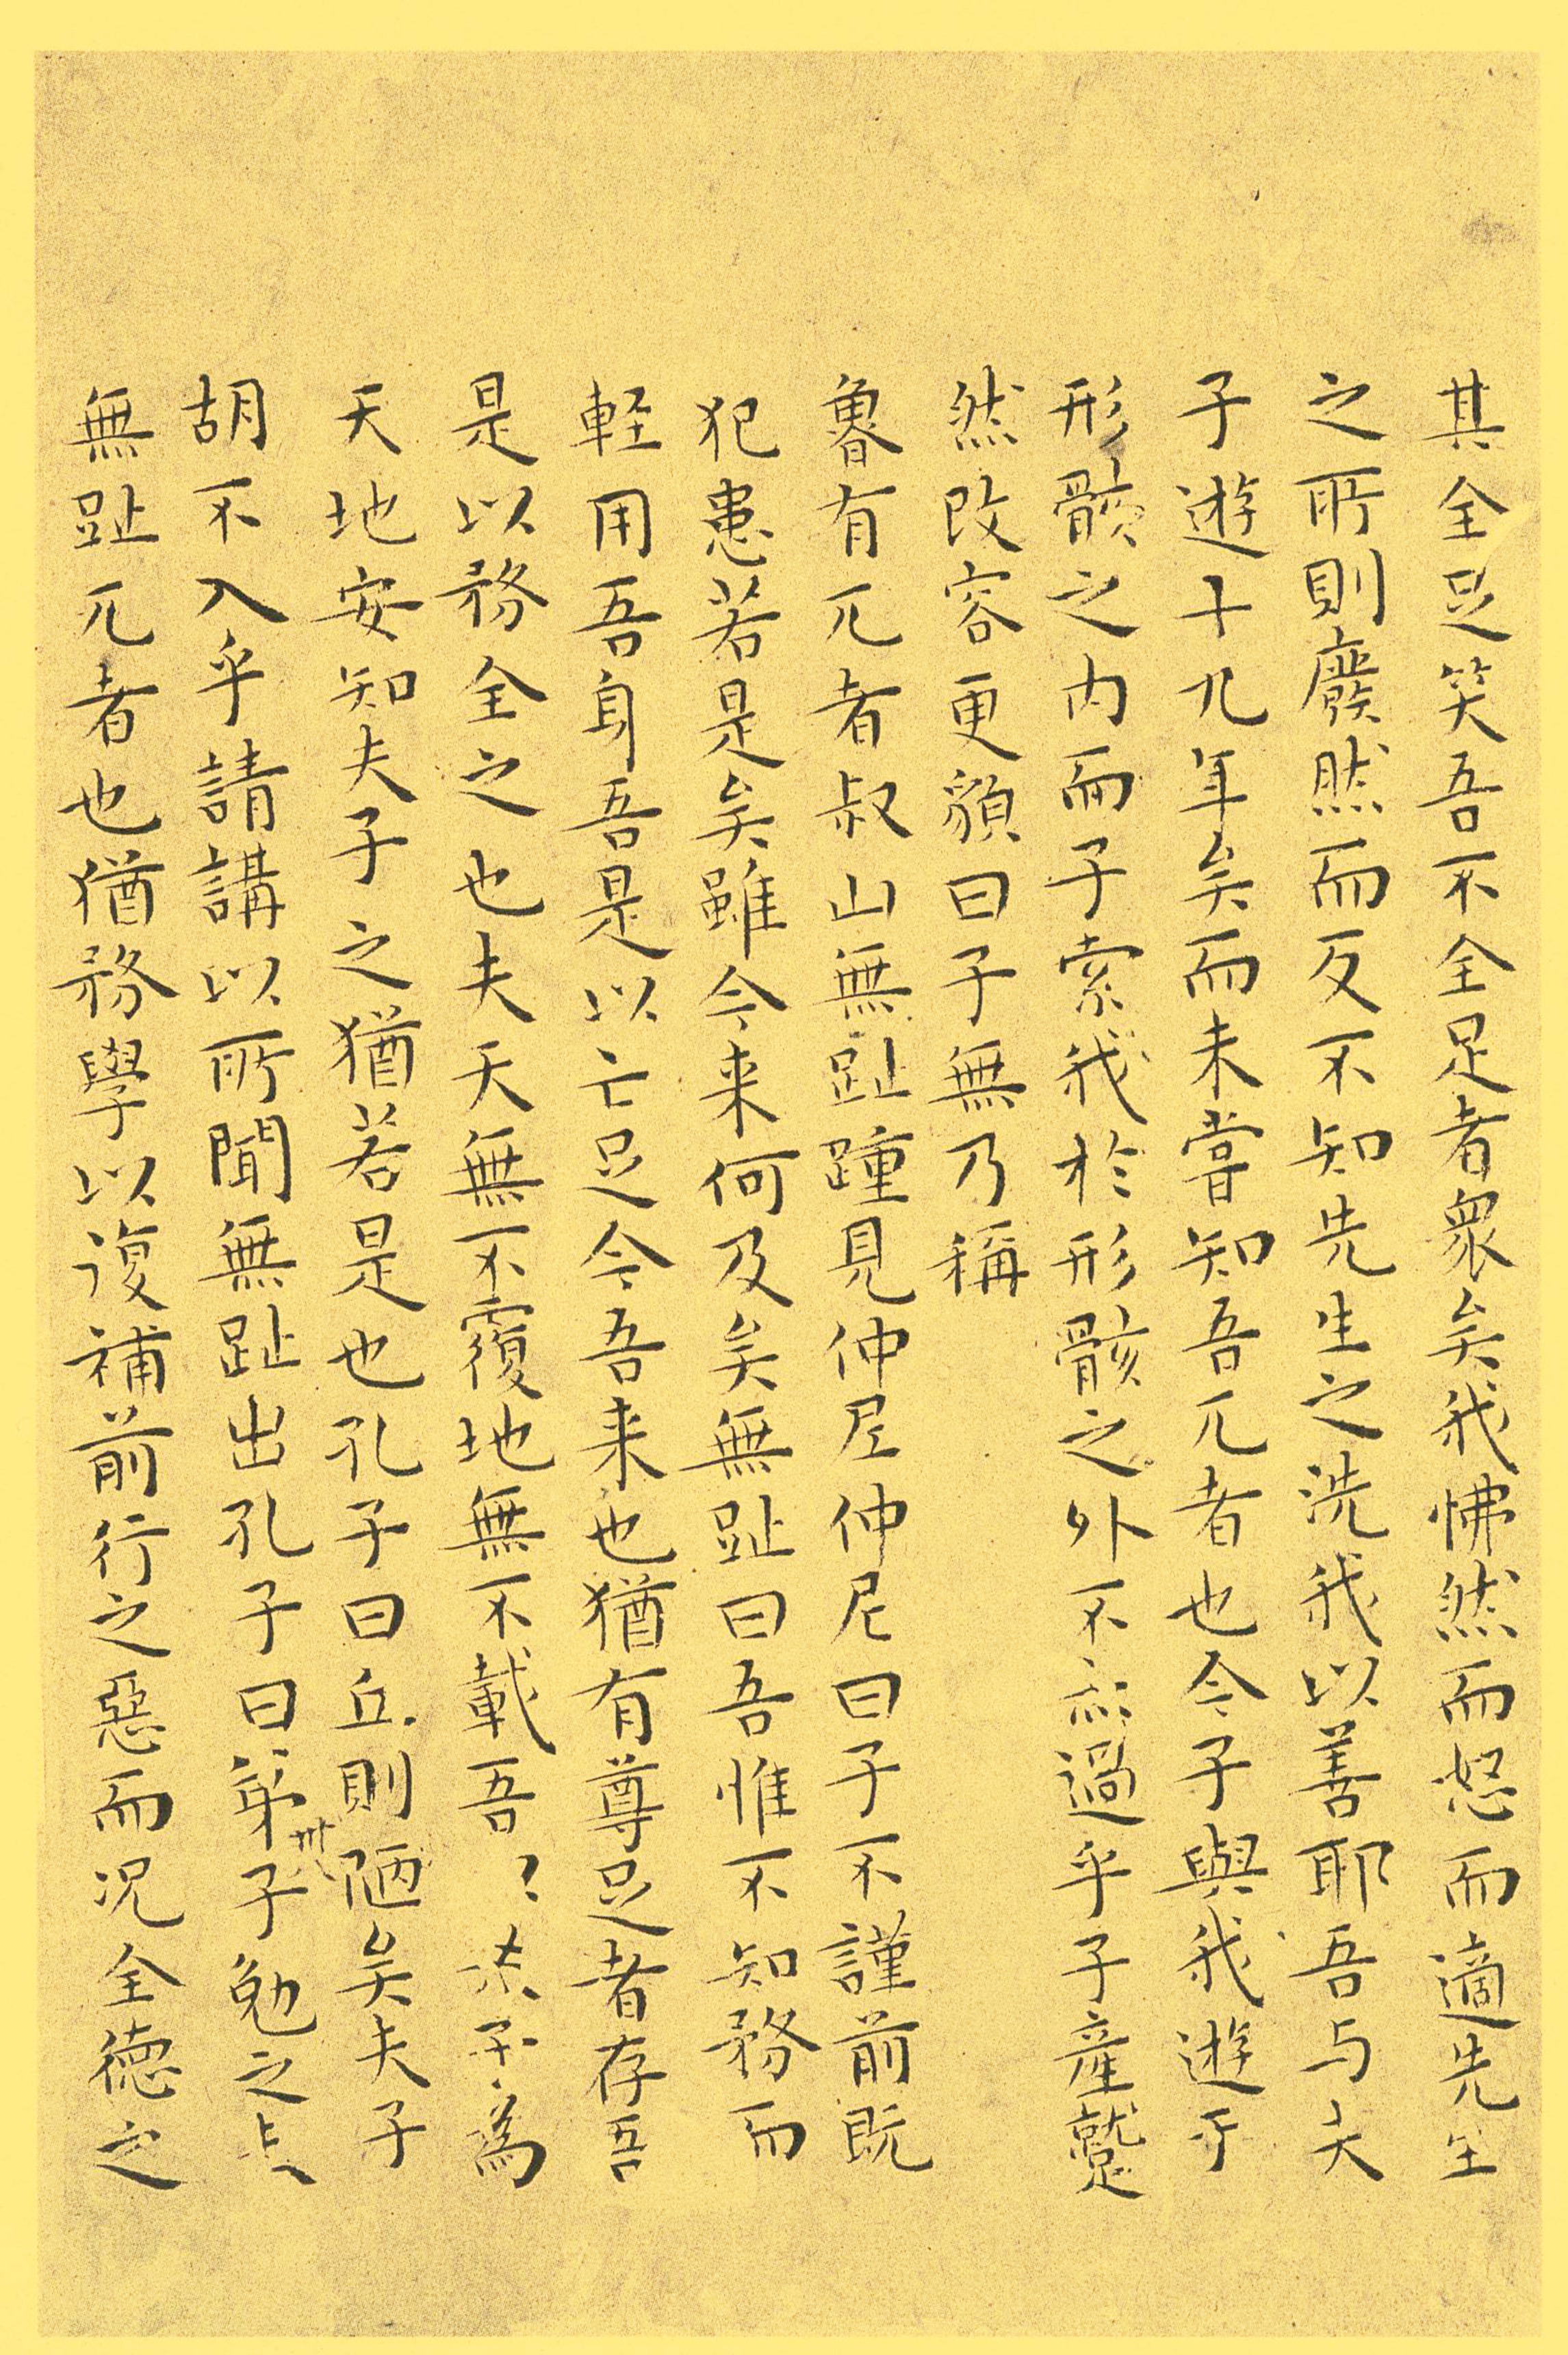 其全足笑吾不全足者衆矣我怫然而怒而適先生
之所則廢然而反不知先生之洗我以善耶吾与夫
子遊十九年矣而未嘗知吾兀者也今子與我遊乎
形骸之内而子索我於形骸之外不亦過乎子産蹵
然改容更貌曰子無乃稱
魯有兀者叔山無趾踵見仲尼仲尼曰子不謹前既
犯患若是矣雖今来何及矣無趾曰吾惟不知務而
軽用吾身吾是以亡足今吾来也猶有尊足者存吾
是以務全之也夫天無不覆地無不載吾〻夫子為
天地安知夫子之猶若是也孔子曰丘則陋矣夫子
胡不入乎請講以所聞無趾出孔子曰弟子勉之夫
無趾兀者也猶務學以復補前行之惡而況全德之